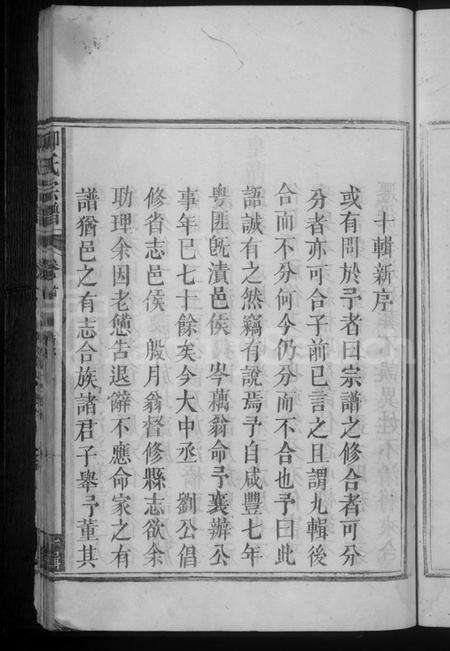 十輯新序
或有問於予者曰宗譜之修合者可分
分者亦可合子前已言之且謂九輯後
合而不分何今仍分而不合也予曰此
語誠有之然竊有說焉予自咸豐七年
粵匪旣潰邑侯 岑藕翁命予襄辦公
事年已七十餘矣今大中丞 劉公倡
修省志邑侯 殷月翁督修縣志欲余
助理余因老憊告退辭不應命家之有
譜猶邑之有志合族諸君子舉予董其
氏宗譜
卷首
十輯